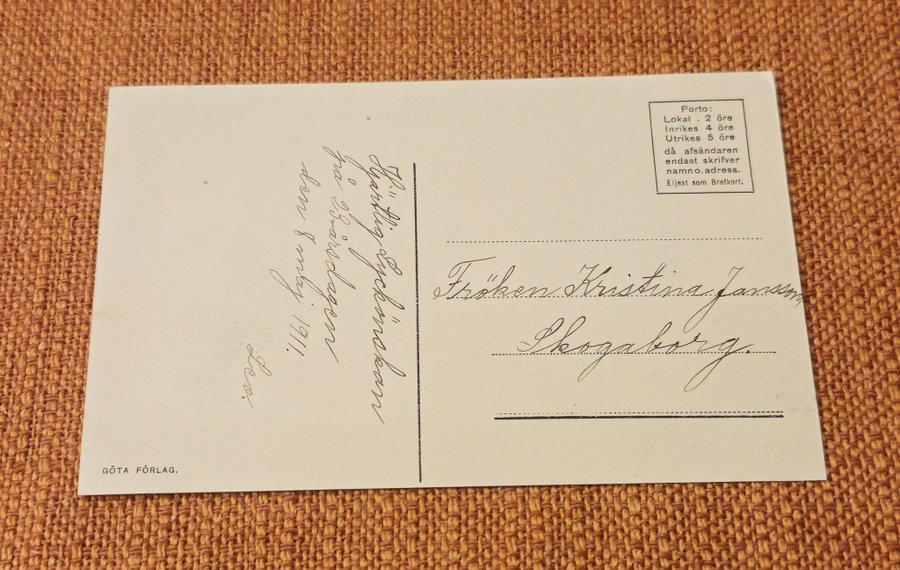 Hjärtlig Lyckönskan
på Bårsdagen
den 8 maj. 1911.
Leo.
GÖTA FÖRLAG.
Porto:
Lokal . 2 öre
Inrikes 4 öre
Utrikes 5 öre
då afsändaren
endast skrifver
namn o. adress.
Eljest som Brefkort.
Fröken Kristina Jansson,
Skogaborg.